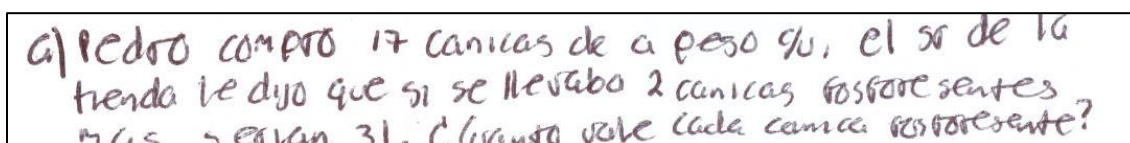 a) Pedro compro 17 canicas de a peso c/u, el sr de la
tienda le dijo que si se llevaba 2 canicas fosforesentes
mas serian 31. ¿Cuanto vale cada canica fosforesente?